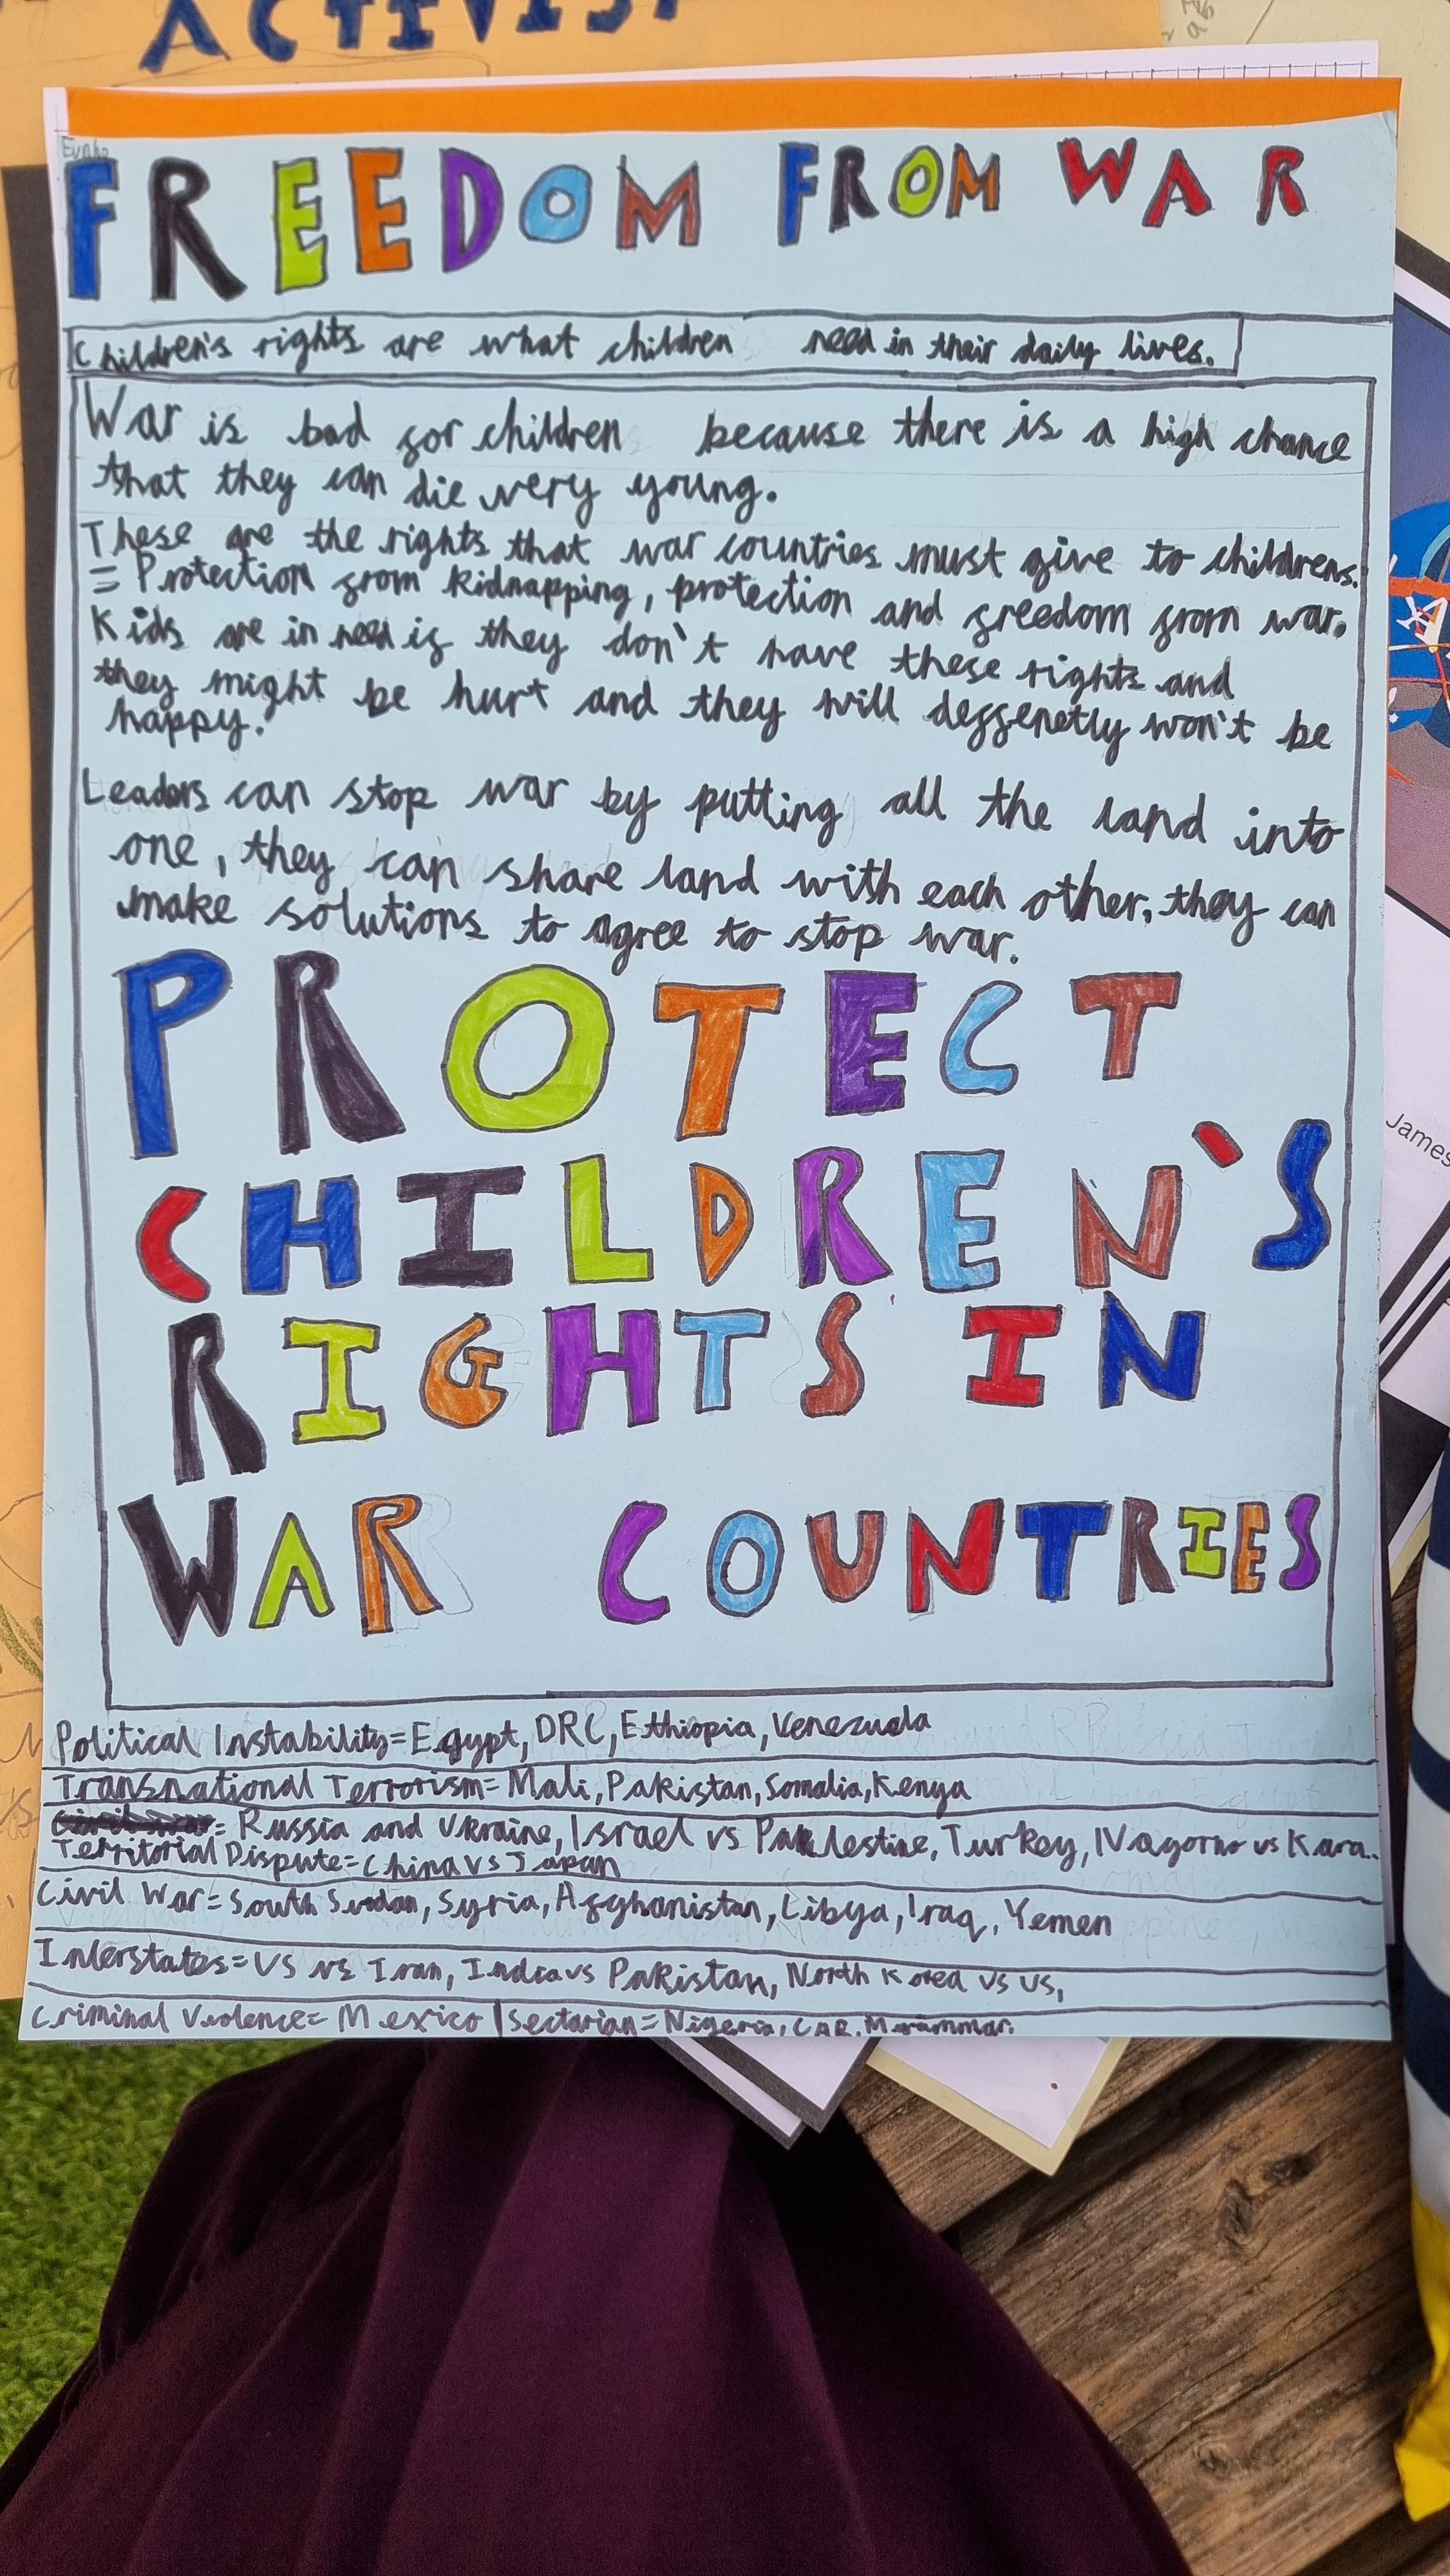 ACTIVIST
FREEDOM FROM WAR
Children's rights are what children need in their daily lives.
War is bad for children because there is a high chance
that they can die very young.
These are the rights that war countries must give to childrens.
= Protection from kidnapping, protection and freedom from war.
Kids are in need if they don't have these rights and
they might be hurt and they will deffenetly won't be
happy.
Leaders can stop war by putting all the land into
one, they can share land with each other, they can
make solutions to agree to stop war.
PROTECT
CHILDREN'S
RIGHTS IN
WAR COUNTRIES
Political Instability=Egypt, DRC, Ethiopia, Venezuela
Transnational Terrorism=Mali, Pakistan, Somalia, Kenya
= Russia and Ukraine, Israel vs Palestine, Turkey, Nagorno vs Kara..
Territorial Dispute=China vs Japan
Civil War=South Sudan, Syria, Afghanistan, Libya, Iraq, Yemen
Interstates=US vs Iran, India vs Pakistan, North Korea vs US,
Criminal Violence=Mexico | Sectarian=Nigeria, CAR,
James